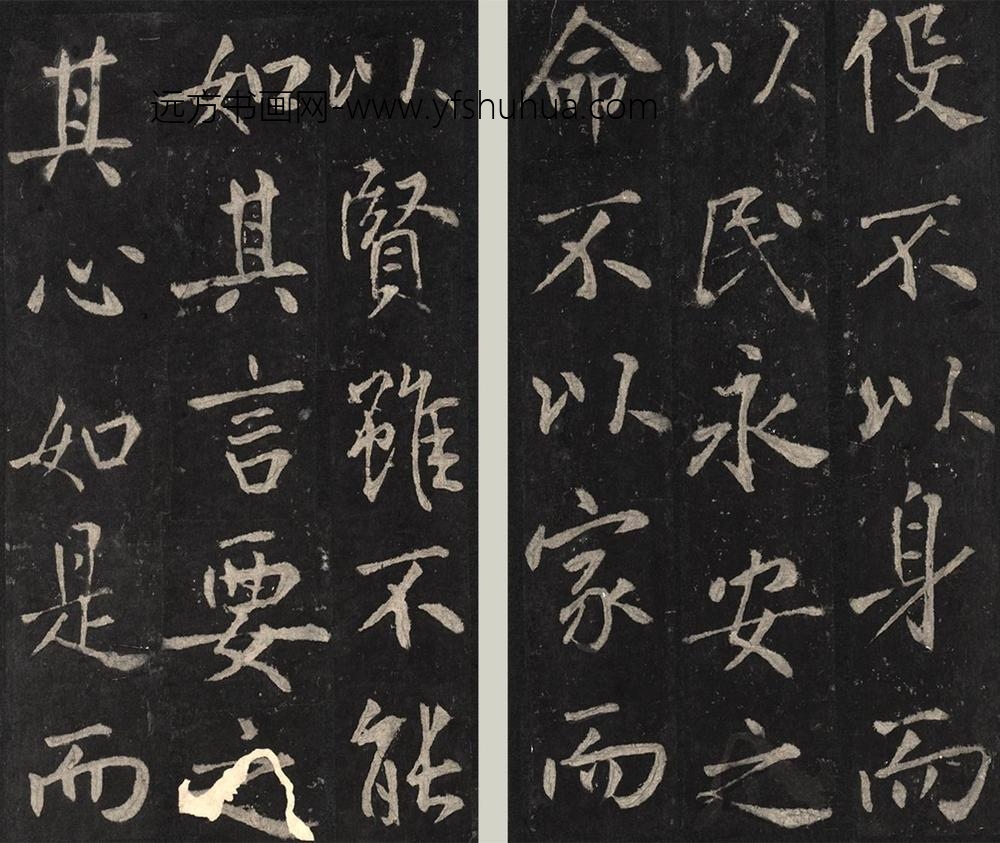 伇不以身而
以民永安之
命不以家而
以賢雖不能
如其言要之
其心如是而
远方书画网-www.yfshuhua.com